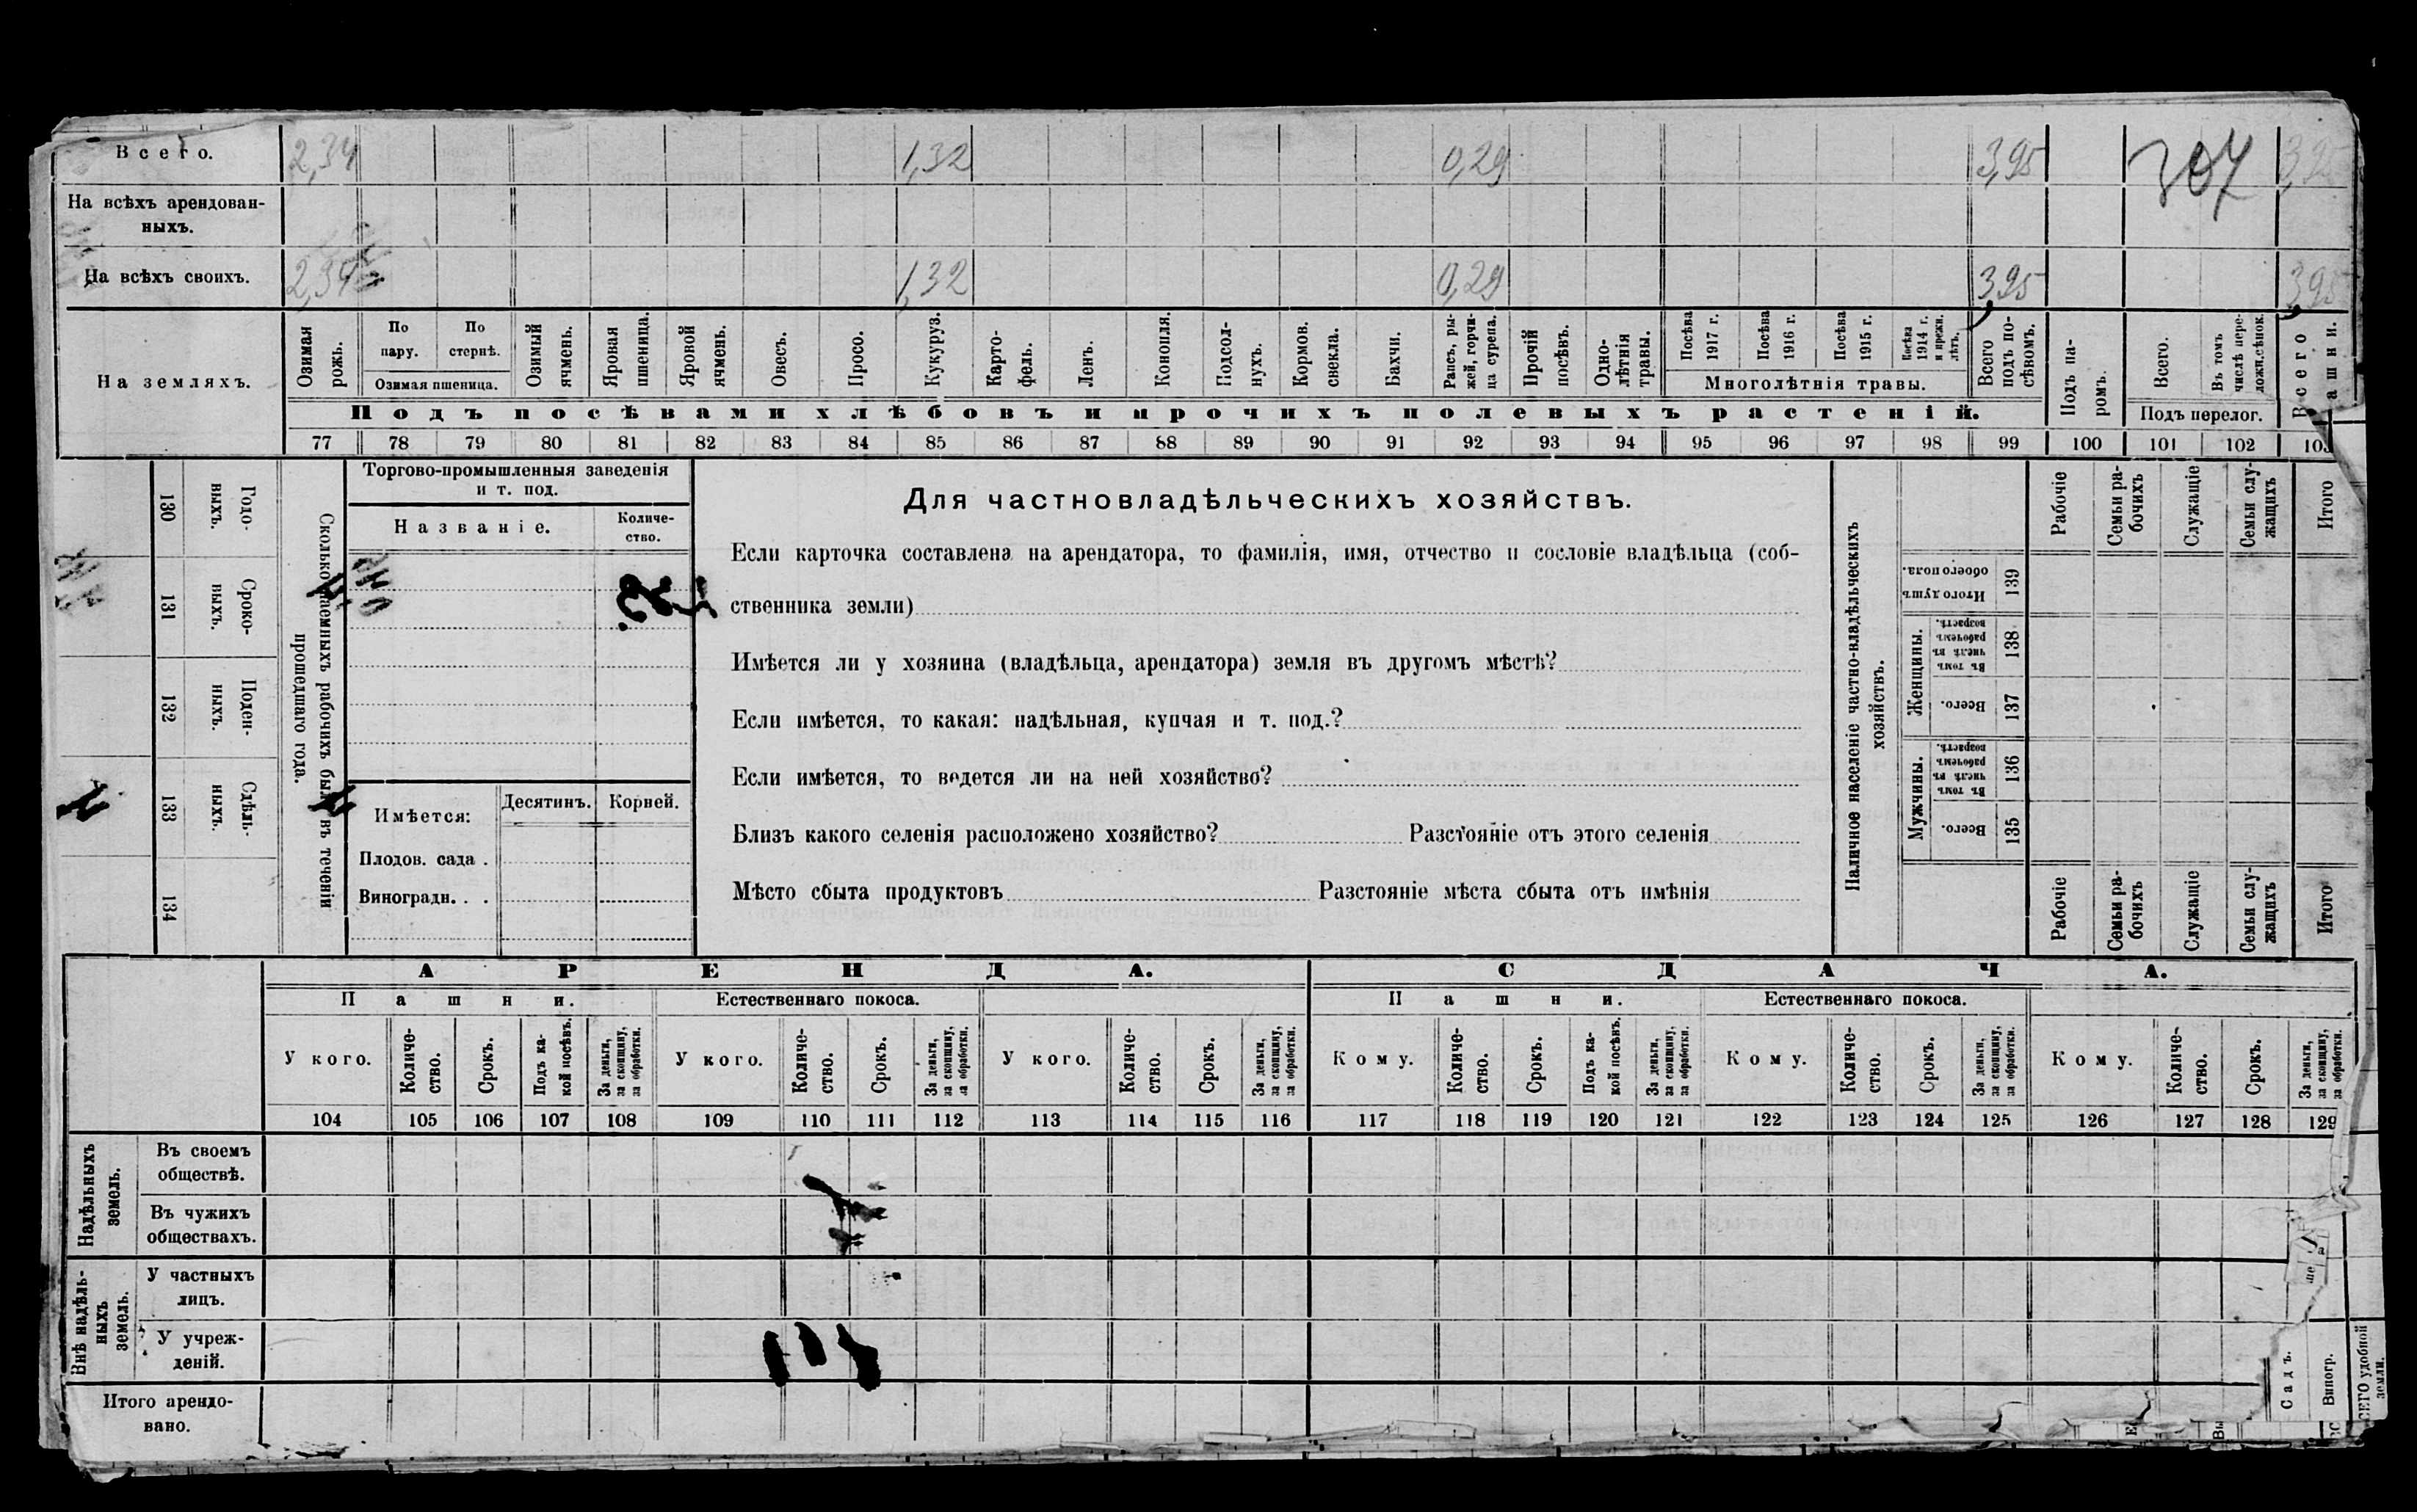 Всего. 2,34 1,32 0,29 3,95 307 3,95
На всѣхъ арендован-
ныхъ.
На всѣхъ своихъ. 2,34 1,32 0,29 3,95 3,95
На земляхъ.
Озимая рожь.
По пару.
По стернѣ.
Озимая пшеница.
Озимый ячмень.
Яровая пшеница.
Яровой ячмень.
Овесъ.
Просо.
Кукуруз.
Карто-
фель.
Ленъ.
Конопля.
Подсол-
нухъ.
Кормов. свекла.
Бахчи.
Рапсъ, ры-
жей, горчи-
ца сурепа.
Прочій посѣвъ.
Одно-
лѣтнія травы.
Посѣва 1917 г.
Посѣва 1916 г.
Посѣва 1915 г.
Посѣва 1914 г. и прежн. лѣтъ.
Многолѣтнія травы.
Всего подъ по-
сѣвомъ.
Подъ па-
ромъ.
Всего.
Въ томъ числѣ пере-
ложн.сѣнок.
Подъ перелог.
Всего
Подъ посѣвами хлѣбовъ и прочихъ полевыхъ растеній.
77 78 79 80 81 82 83 84 85 86 87 88 89 90 91 92 93 94 95 96 97 98 99 100 101 102 103
130 Годо-
ныхъ.
131 Сроко-
ныхъ.
132 Поден-
ныхъ.
133 Сдѣль-
ныхъ.
134
прошедшаго года.
Торгово-промышленныя заведенія
и т. под.
Названіе. Количе-
ство.
Имѣется: Десятинъ. Корней.
Плодов. сада .
Виноградн. . .
Для частновладѣльческихъ хозяйствъ.
Если карточка составлена на арендатора, то фамилія, имя, отчество и сословіе владѣльца (соб-
ственника земли)
Имѣется ли у хозяина (владѣльца, арендатора) земля въ другомъ мѣстѣ?
Если имѣется, то какая: надѣльная, купчая и т. под.?
Если имѣется, то ведется ли на ней хозяйство?
Близъ какого селенія расположено хозяйство? Разстояніе отъ этого селенія
Мѣсто сбыта продуктовъ Разстояніе мѣста сбыта отъ имѣнія
Наличное населеніе частно-владѣльческихъ
хозяйствъ.
Рабочіе
Семьи ра-
бочихъ
Служащіе
Семьи слу-
жащихъ
Итого
Итого душъ обоего пола. 139
Женщины.
Въ томъ числѣ въ рабочемъ возрастѣ. 138
Всего. 137
Мужчины.
Въ томъ числѣ въ рабочемъ возрастѣ. 136
Всего. 135
Рабочіе
Семьи ра-
бочихъ
Служащіе
Семьи слу-
жащихъ
Итого
АРЕНДА. СДАЧА.
Пашни. Естественнаго покоса. Пашни. Естественнаго покоса.
У кого.
Количе-
ство.
Срокъ.
Подъ ка-
кой посѣвъ.
За деньги, за скопщину, за обработки.
У кого.
Количе-
ство.
Срокъ.
За деньги, за скопщину, за обработки.
У кого.
Количе-
ство.
Срокъ.
За деньги, за скопщину, за обработки.
Кому.
Количе-
ство.
Срокъ.
Подъ ка-
кой посѣвъ.
За деньги, за скопщину, за обработки.
Кому.
Количе-
ство.
Срокъ.
За деньги, за скопщину, за обработки.
Кому.
Количе-
ство.
Срокъ.
За деньги, за скопщину, за обработки.
104 105 106 107 108 109 110 111 112 113 114 115 116 117 118 119 120 121 122 123 124 125 126 127 128 129
Надѣльныхъ
земель.
Въ своемъ
обществѣ.
Въ чужихъ
обществахъ.
Внѣ надѣль-
ныхъ
земель.
У частныхъ
лицъ.
У учреж-
деній.
Итого арендо-
вано.
Садъ.
Виногр.
удобной
земли.